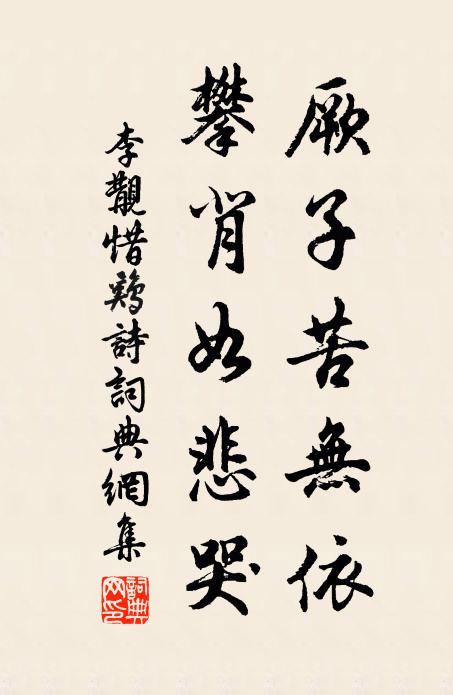 厥子苦無依
攀肖如悲哭
李觀惜鷄詩詞典網集
詞典网印